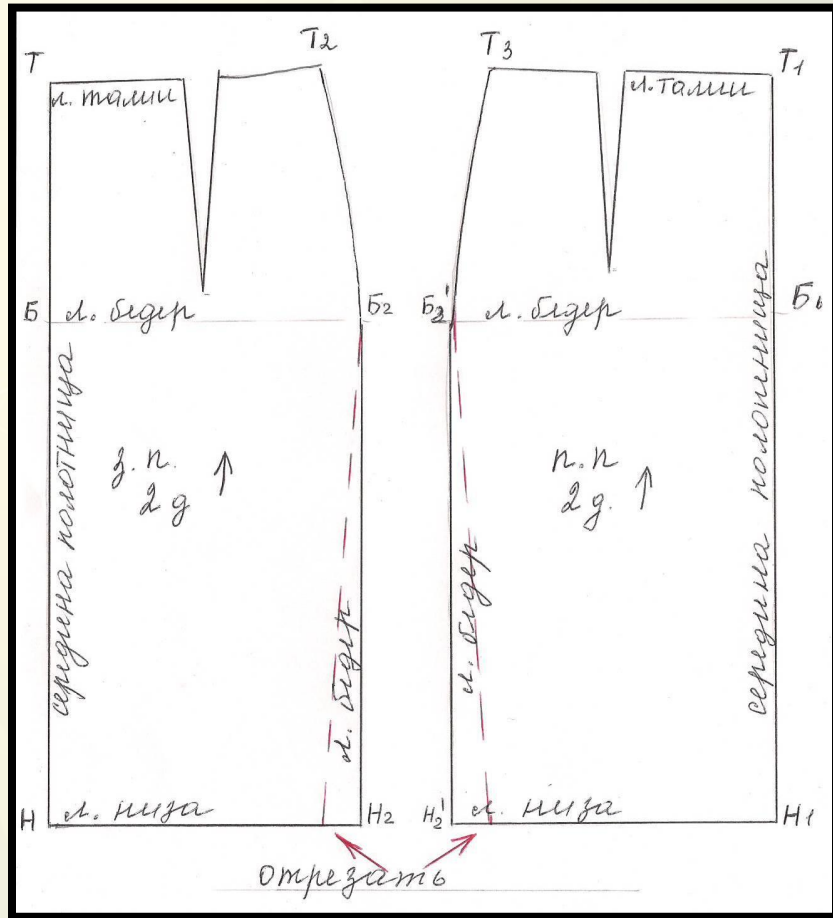 Т
Т2
Т3
Т1
л. талии
л. талии
Б
л. бедер
Б2
Б2'
л. бедер
Б1
середина полотнища
з. п.
2 д
л. бедер
п. п
2 д.
л. бедер
середина полотнища
Н
л. низа
Н2
Н2'
л. низа
Н1
отрезать